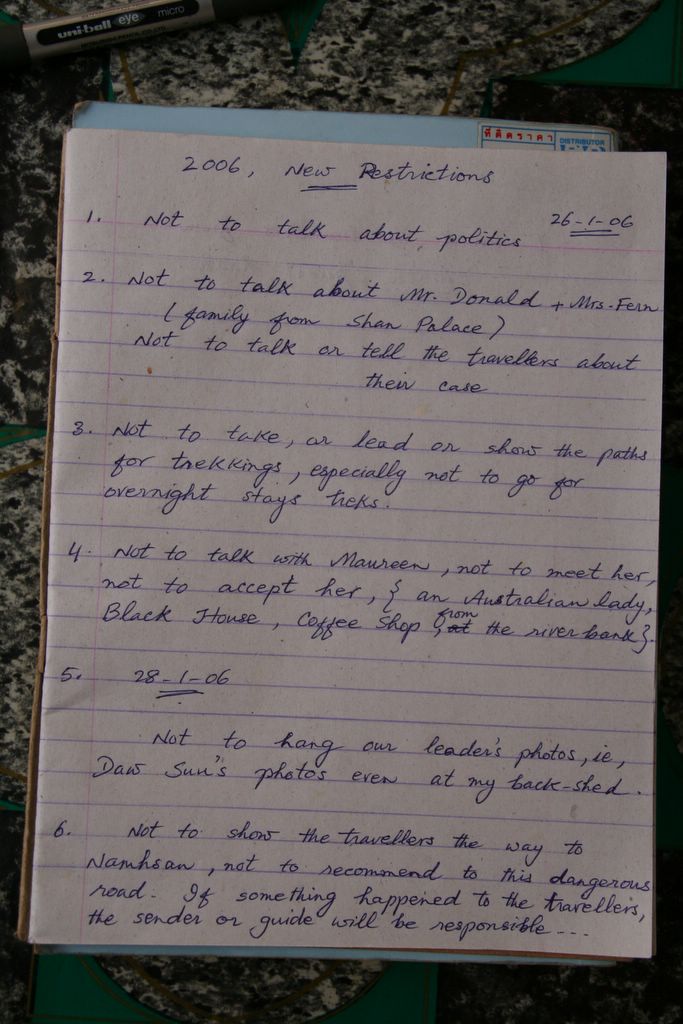 uni-ball eye micro
ที่ติดราคา
DISTRIBUTOR
2006, New Restrictions
26-1-06
1. Not to talk about politics
2. Not to talk about Mr. Donald + Mrs. Fern
(family from Shan Palace)
Not to talk or tell the travellers about
their case
3. Not to take, or lead or show the paths
for trekkings, especially not to go for
overnight stays treks.
4. Not to talk with Maureen, not to meet her,
not to accept her, { an Australian lady,
Black House, Coffee Shop, at from the river bank}.
5. 28-1-06
Not to hang our leader's photos, ie,
Daw Suu's photos even at my back-shed.
6. Not to show the travellers the way to
Namhsan, not to recommend to this dangerous
road. If something happened to the travellers,
the sender or guide will be responsible ---